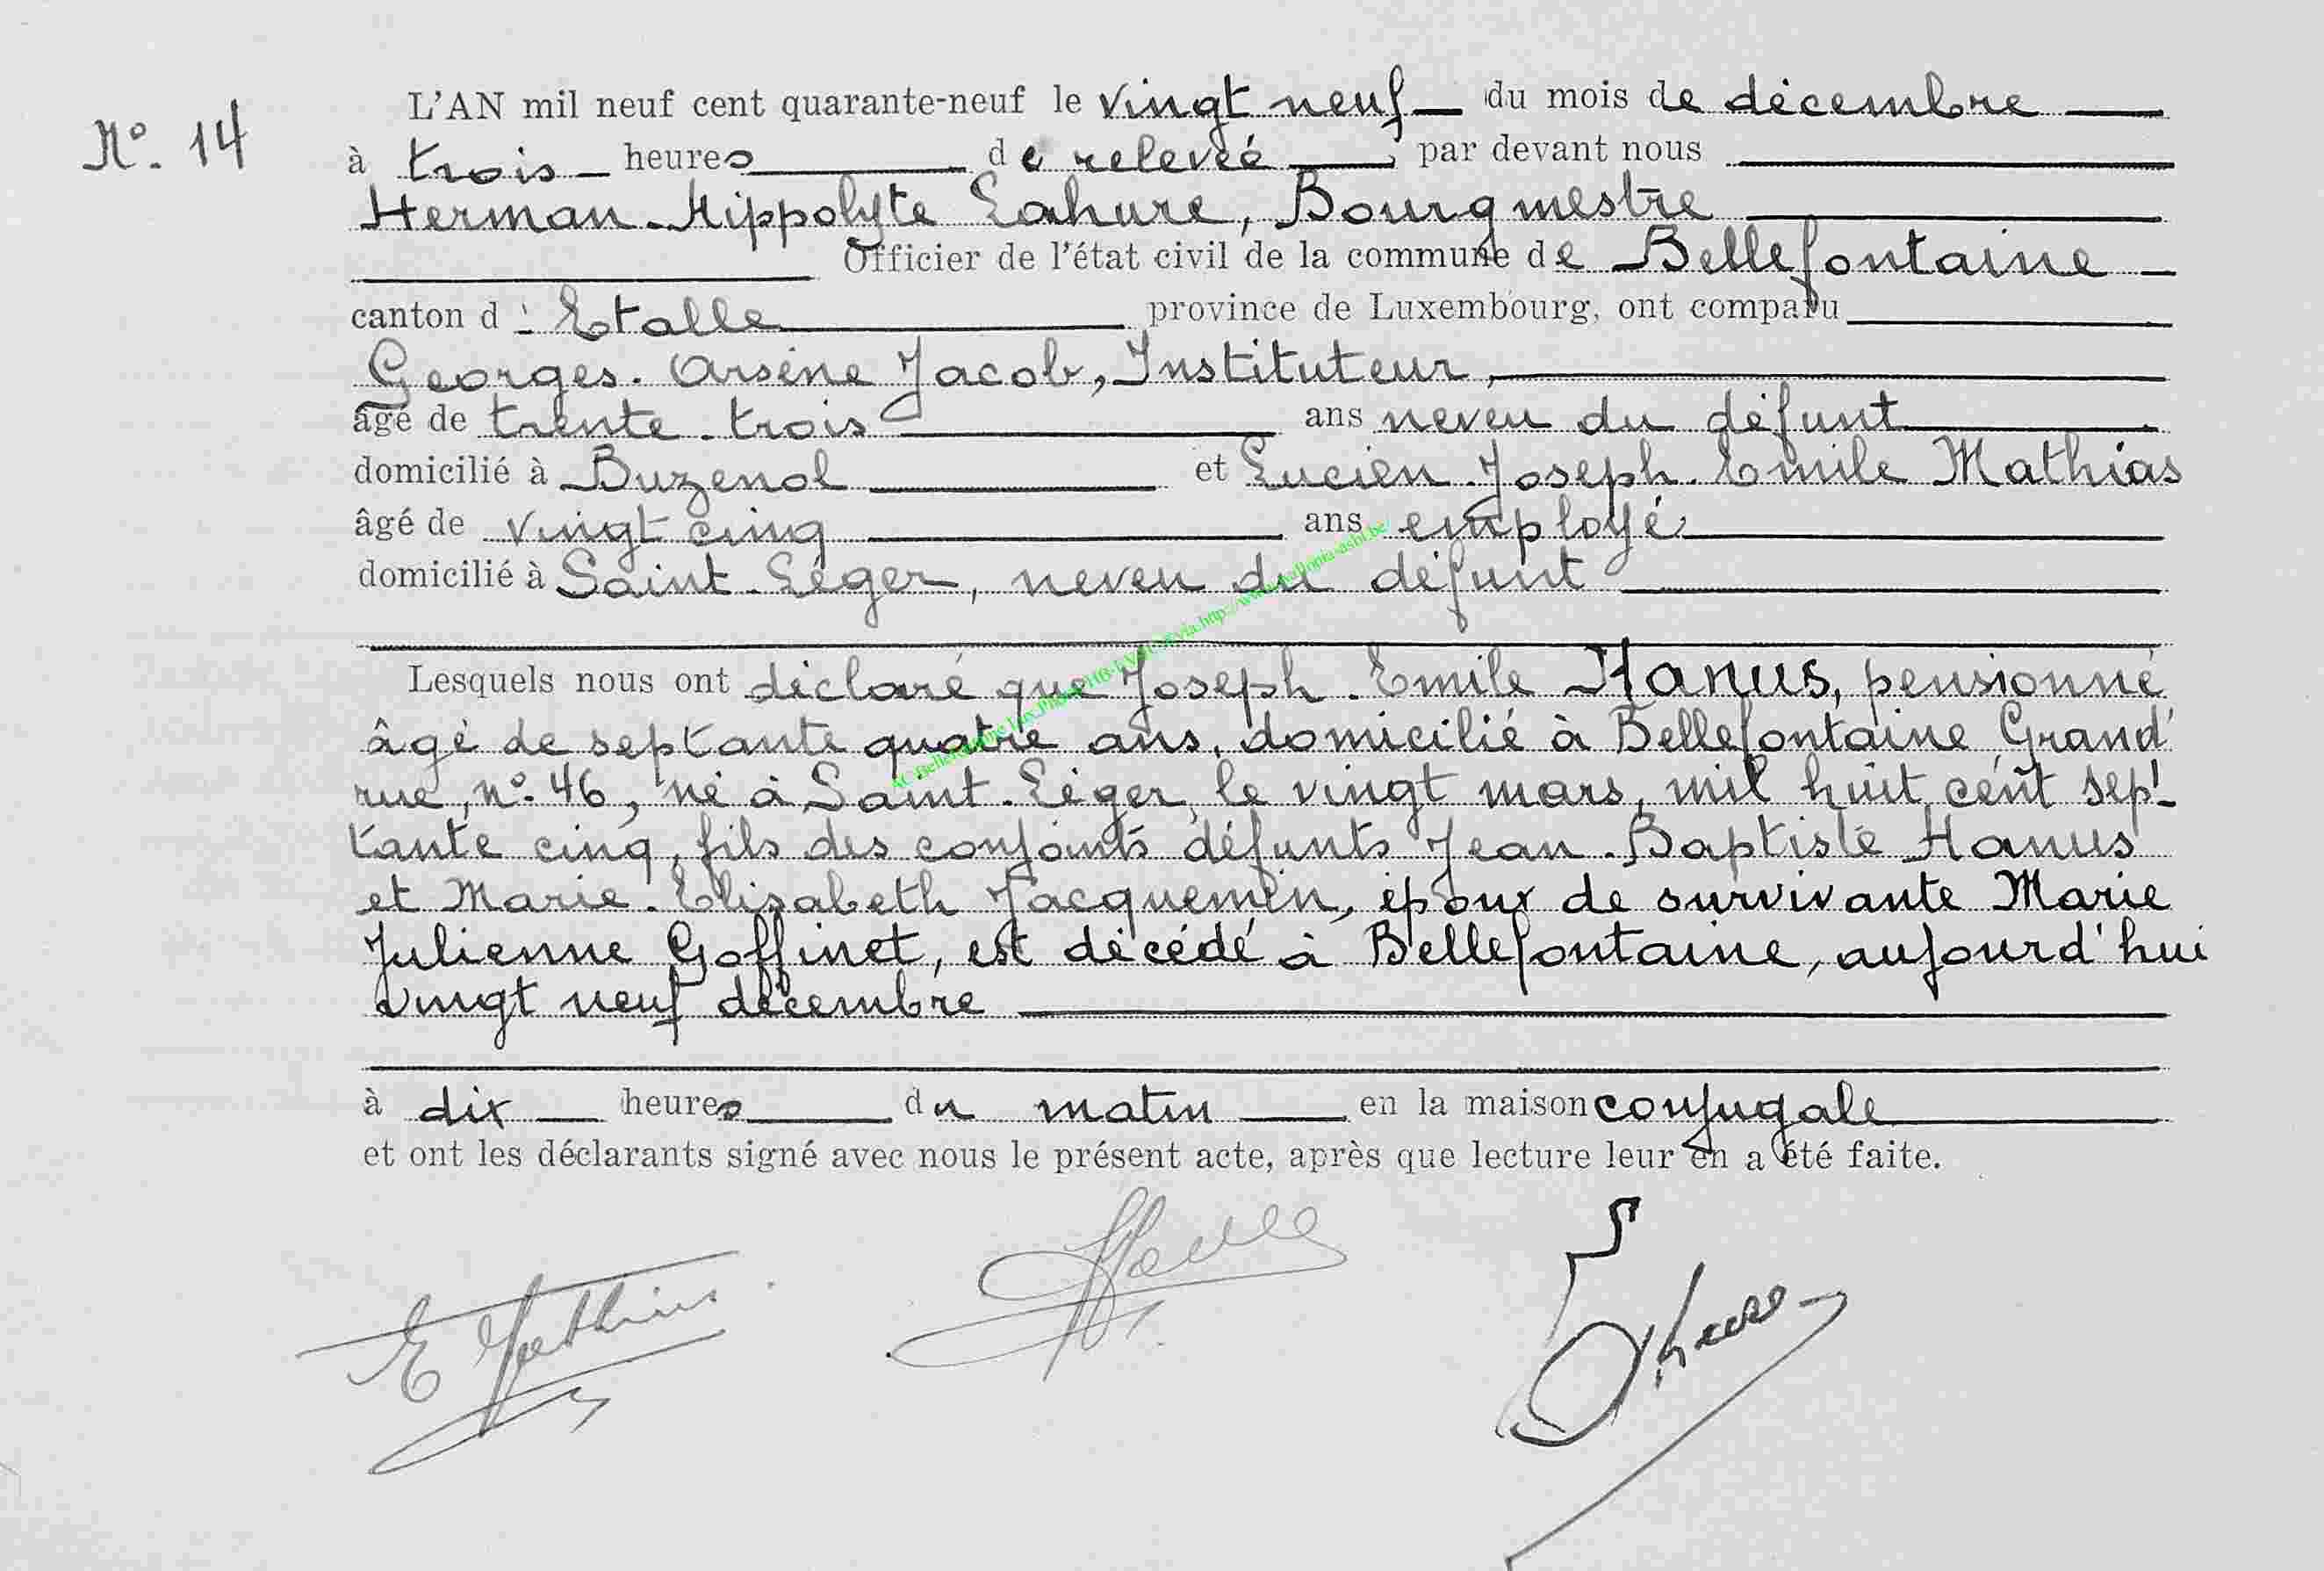 N° 14
L'AN mil neuf cent quarante-neuf le vingt neuf du mois de décembre
à trois heures de relevée, par devant nous
Herman-Hippolyte Lahure, Bourgmestre
Officier de l'état civil de la commune de Bellefontaine
canton d'Etalle province de Luxembourg, ont comparu
Georges-Arsène Jacob, Instituteur,
âgé de trente-trois ans neveu du défunt
domicilié à Buzenol et Lucien-Joseph-Emile Mathias
âgé de vingt cinq ans employé
domicilié à Saint-Léger, neveu du défunt
Lesquels nous ont déclaré que Joseph-Emile Hanus, pensionné
âgé de septante quatre ans, domicilié à Bellefontaine Grand'
rue, n° 46, né à Saint-Léger, le vingt mars, mil huit cent sep-
tante cinq, fils des conjoints défunts Jean-Baptiste Hanus
et Marie-Elisabeth Jacquemin, époux de survivante Marie
Julienne Goffinet, est décédé à Bellefontaine, aujourd'hui
vingt neuf décembre
à dix heures du matin en la maison conjugale
et ont les déclarants signé avec nous le présent acte, après que lecture leur en a été faite.
E Mathias